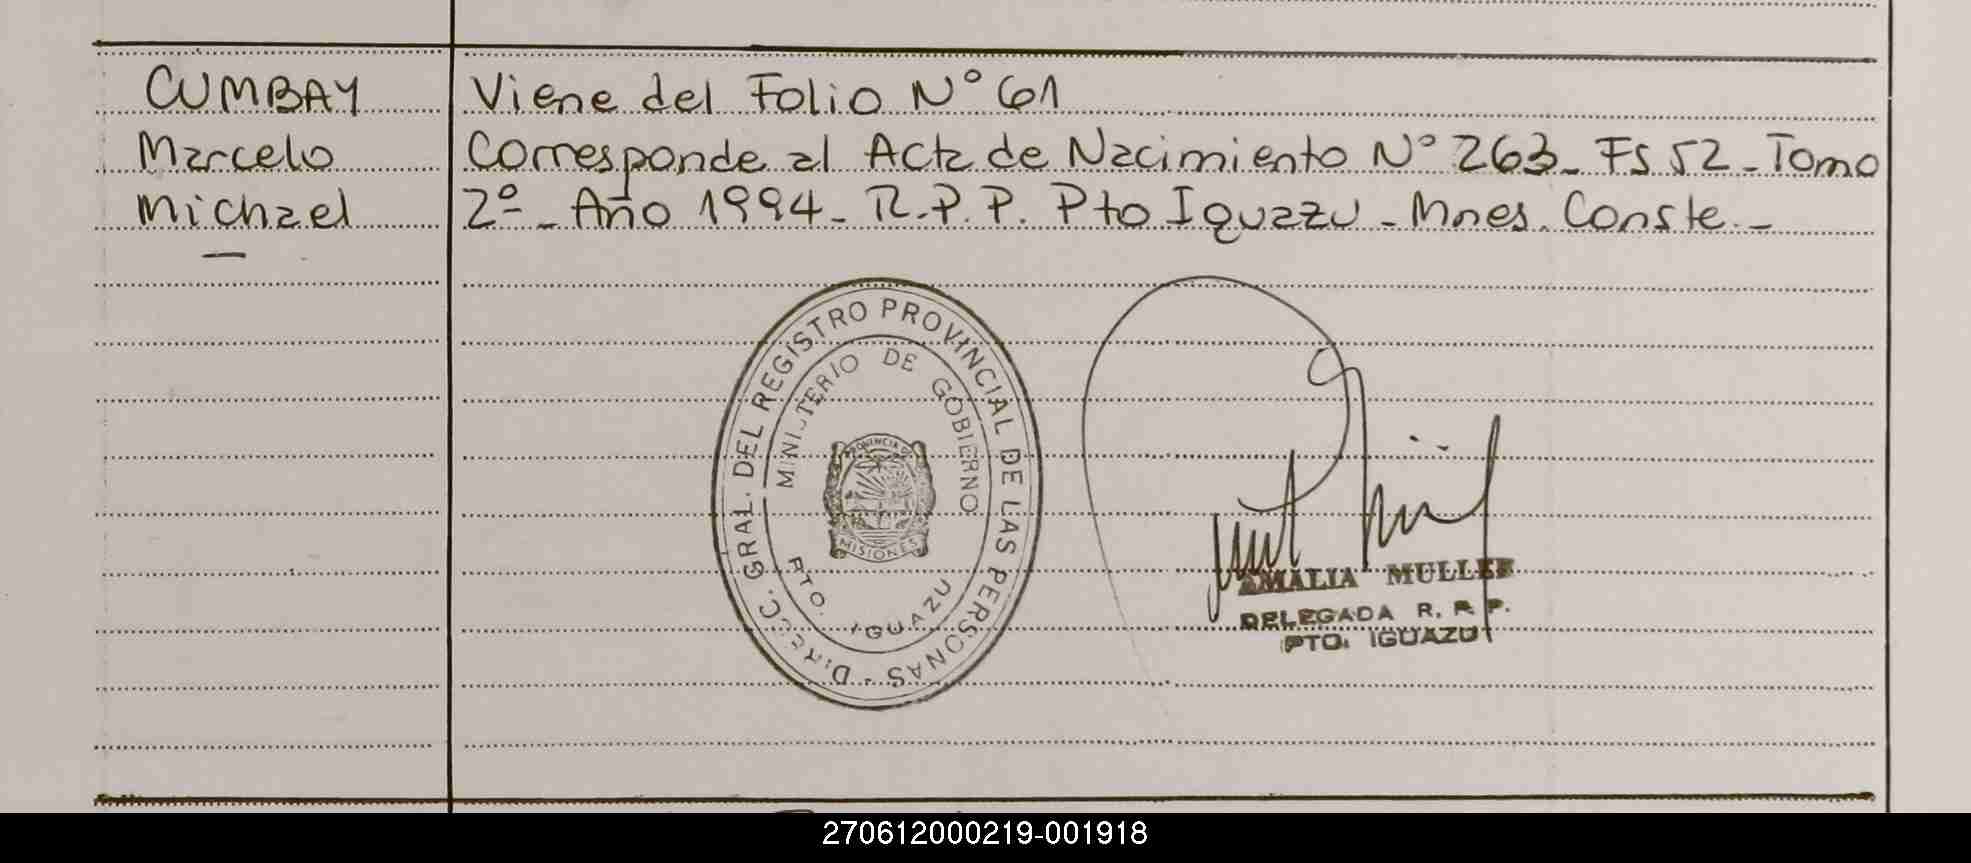 CUMBAY
Marcelo
Michael
Viene del Folio N° 61
Corresponde al Acta de Nacimiento N° 263_ Fs 52 _ Tomo
2º _ Año 1994 _ R.P.P. Pto Iguazu - Mnes. Conste._
DIRECC. GRAL. DEL REGISTRO PROVINCIAL DE LAS PERSONAS -
MINISTERIO DE GOBIERNO
PROVINCIA DE
MISIONES
PTO. IGUAZU
AMALIA MULLER
DELEGADA R. P. P.
PTO. IGUAZU
270612000219-001918